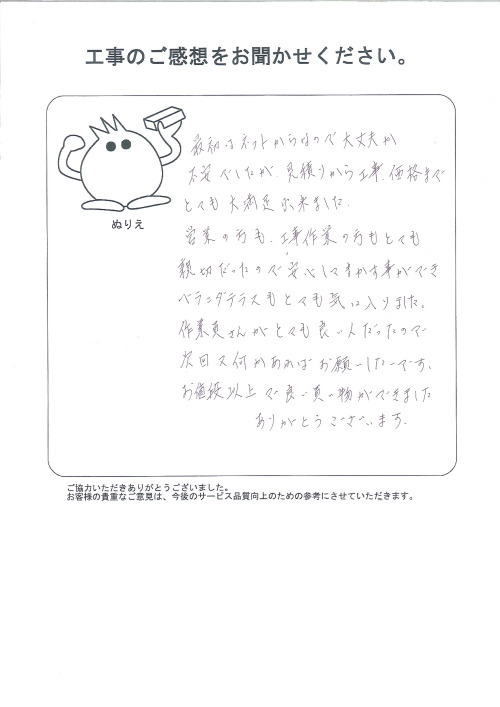 工事のご感想をお聞かせください。
ぬりえ
最初はネットからなので大丈夫か
不安でしたが、見積りから工事、価格まで
とても大満足出来ました。
営業の方も、工事作業の方もとても
親切だったので安心してまかす事ができ
ベランダテラスもとても気に入りました。
作業員さんがとても良い人だったので
次回又何かあればお願いしたいです。
お値段以上で良い買い物ができました
ありがとうございます。
ご協力いただきありがとうございました。
お客様の貴重なご意見は、今後のサービス品質向上のための参考にさせていただきます。